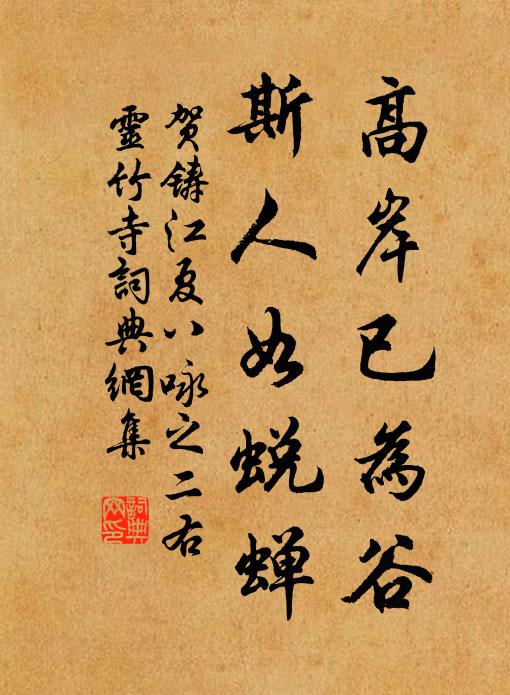 高岸已為谷
斯人如蜕蝉
賀鑄江夏八咏之二右
靈竹寺詞典網集
詞典網印